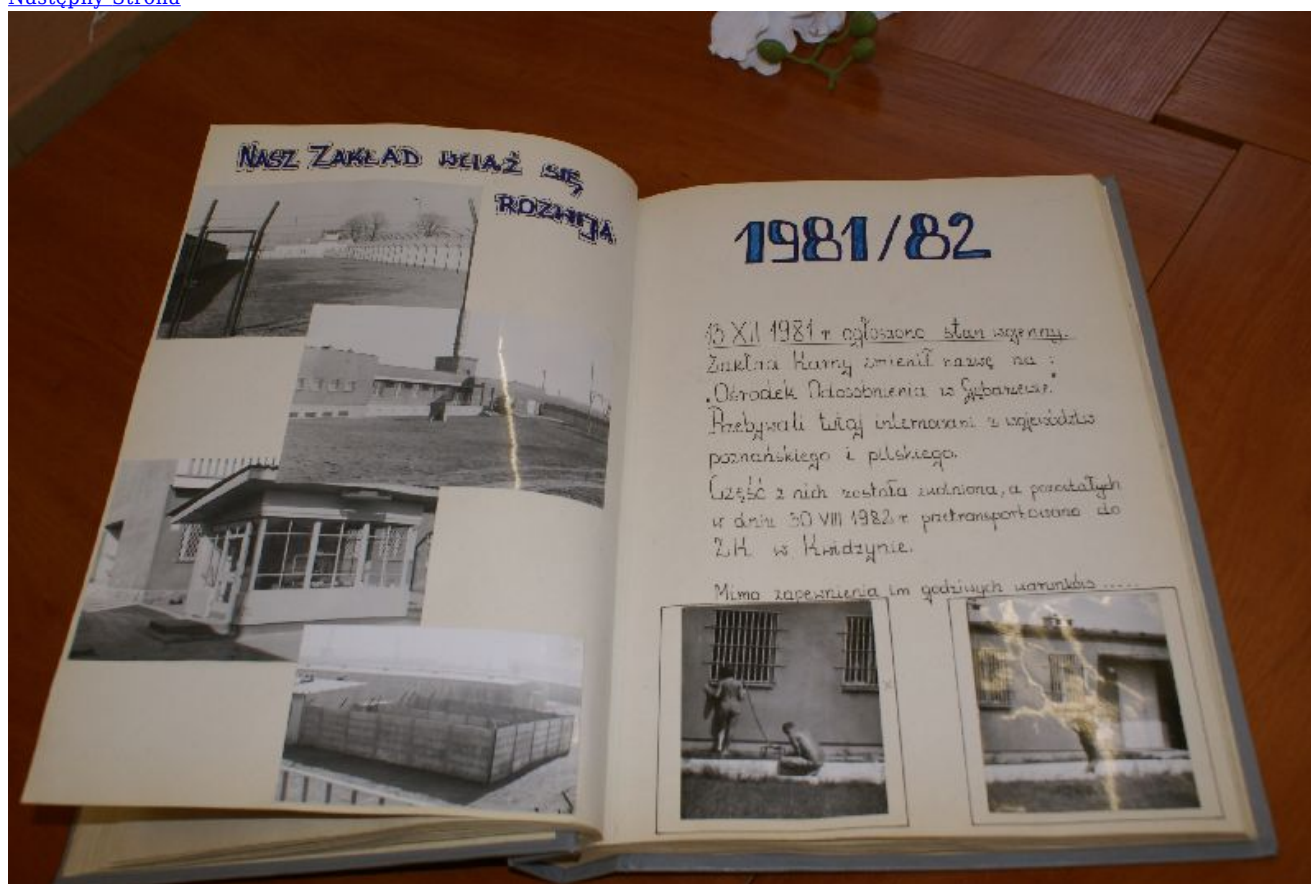 Następny Strona
NASZ ZAKŁAD WCIĄŻ SIĘ
ROZWIJA
1981/82
13 XII 1981 r ogłoszono stan wojenny.
Zakład Karny zmienił nazwę na :
„Ośrodek Odosobnienia w Gębarzewie."
Przebywali tutaj internowani z województw
poznańskiego i pilskiego.
Część z nich została zwolniona, a pozostałych
w dniu 30 VIII 1982 r przetransportowano do
ZK w Kwidzynie.
Mimo zapewnienia im godziwych warunków .....